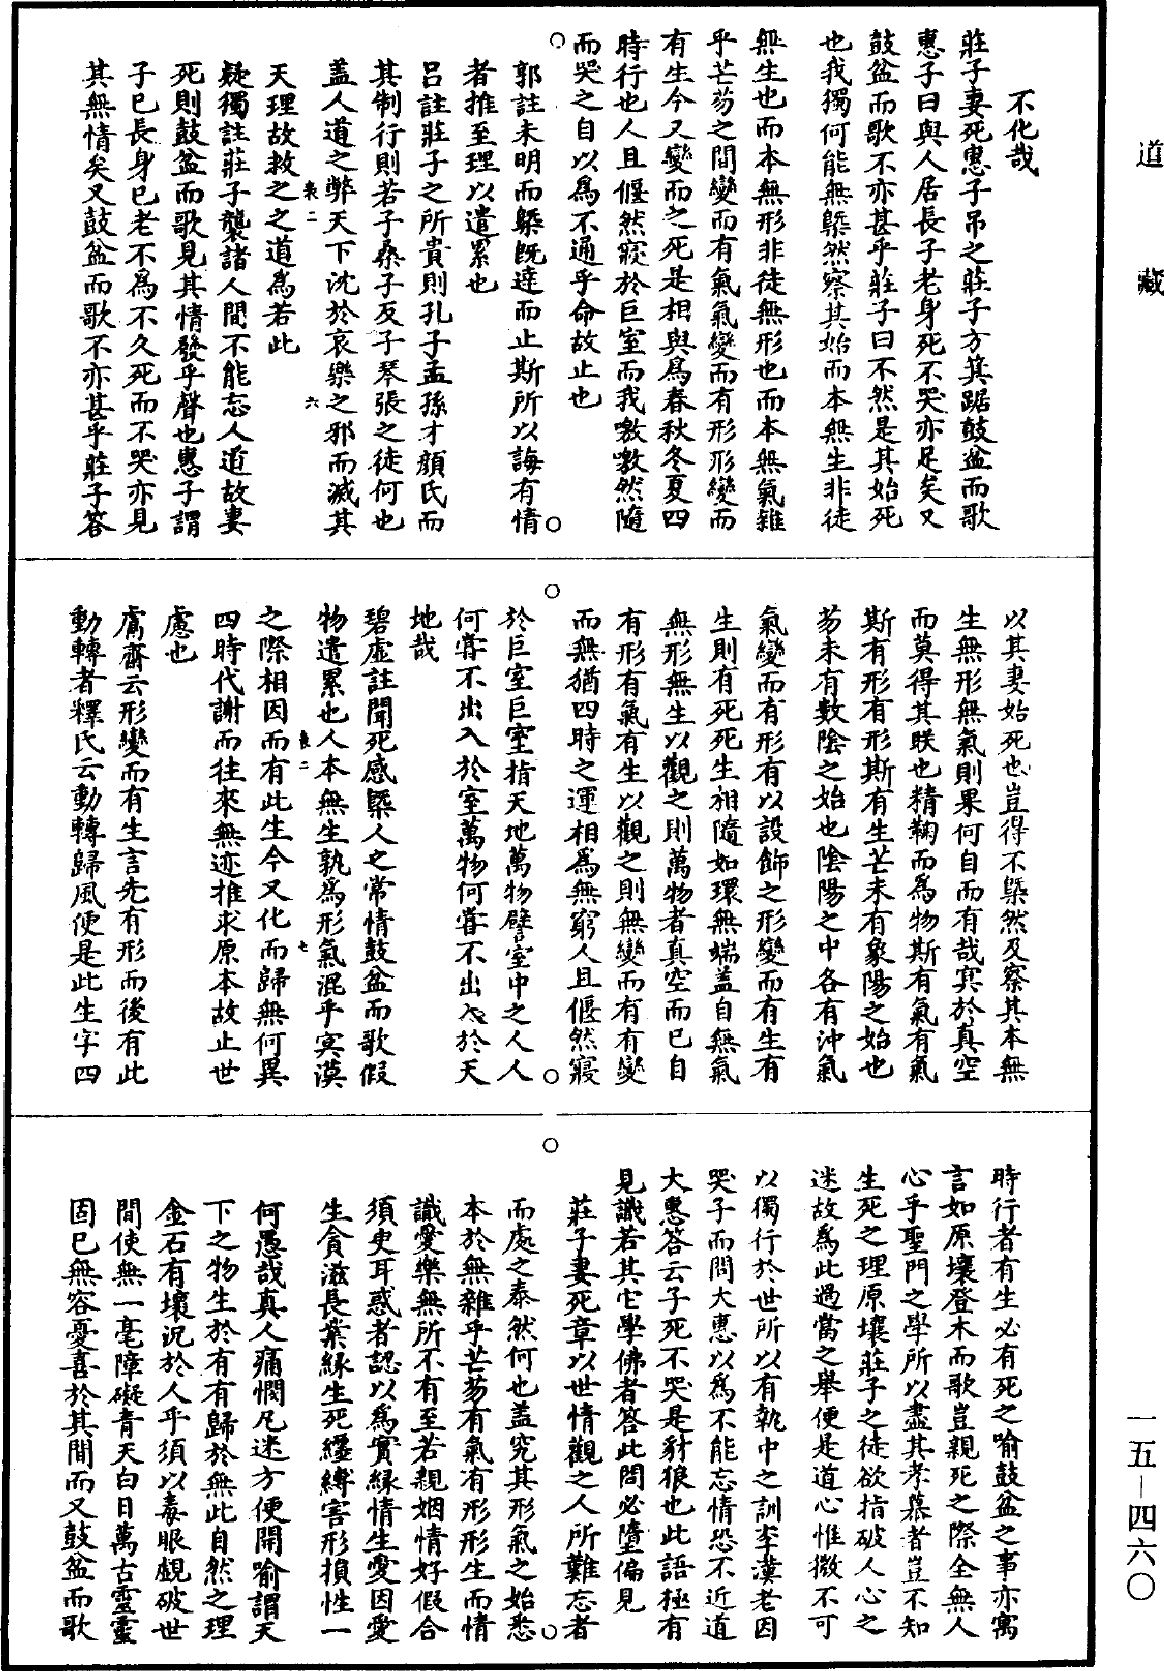 道藏
不化哉
莊子妻死惠子吊之莊子方箕踞鼓盆而歌
惠子曰與人居長子老身死不哭亦足矣又
鼓盆而歌不亦甚乎莊子曰不然是其始死
也我獨何能無槩然察其始而本無生非徒
無生也而本無形非徒無形也而本無氣雜
乎芒芴之間變而有氣氣變而有形形變而
有生今又變而之死是相與爲春秋冬夏四
時行也人且偃然寢於巨室而我噭噭然隨
而哭之自以爲不通乎命故止也
郭註未明而槩既達而止斯所以誨有情
者推至理以遣累也
呂註莊子之所貴則孔子孟孫才顏氏而
其制行則若子桑子反子琴張之徒何也
蓋人道之弊天下沈於哀樂之邪而滅其
袠二 六
天理故救之之道爲若此
疑獨註莊子襲諸人間不能忘人道故妻
死則鼓盆而歌見其情發乎聲也惠子謂
子已長身已老不爲不久死而不哭亦見
其無情矣又鼓盆而歌不亦甚乎莊子答
以其妻始死也豈得不槩然及察其本無
生無形無氣則果何自而有哉冥於真空
而莫得其眹也精鞠而爲物斯有氣有氣
斯有形有形斯有生芒未有象陽之始也
芴未有數陰之始也陰陽之中各有沖氣
氣變而有形有以設飾之形變而有生有
生則有死死生相隨如環無端蓋自無氣
無形無生以觀之則萬物者真空而已自
有形有氣有生以觀之則無變而有有變
而無猶四時之運相爲無窮人且偃然寢
於巨室巨室指天地萬物譬室中之人人
何嘗不出入於室萬物何嘗不出入於天
地哉
碧虛註聞死感槩人之常情鼓盆而歌假
物遣累也人本無生孰爲形氣混乎冥漠
袠二 七
之際相因而有此生今又化而歸無何異
四時代謝而往來無迹推求原本故止世
慮也
鬳齋云形變而有生言先有形而後有此
動轉者釋氏云動轉歸風便是此生字四
時行者有生必有死之喻鼓盆之事亦寓
言如原壤登木而歌豈親死之際全無人
心乎聖門之學所以盡其孝慕者豈不知
生死之理原壤莊子之徒欲指破人心之
迷故爲此過當之舉便是道心惟微不可
以獨行於世所以有執中之訓李漢老因
哭子而問大惠以爲不能忘情恐不近道
大惠答云子死不哭是豺狼也此語極有
見識若其它學佛者答此問必墮偏見
莊子妻死章以世情觀之人所難忘者
而處之泰然何也蓋究其形氣之始悉
本於無雜乎芒芴有氣有形形生而情
識愛樂無所不有至若親姻情好假合
須臾耳惑者認以爲實緣情生愛因愛
生貪滋長業緣生死纏縛害形損性一
何愚哉真人痛憫凡迷方便開喻謂天
下之物生於有有歸於無此自然之理
金石有壞況於人乎須以毒眼覷破世
間使無一毫障礙青天白日萬古靈靈
固已無容憂喜於其間而又鼓盆而歌
一五－四六〇